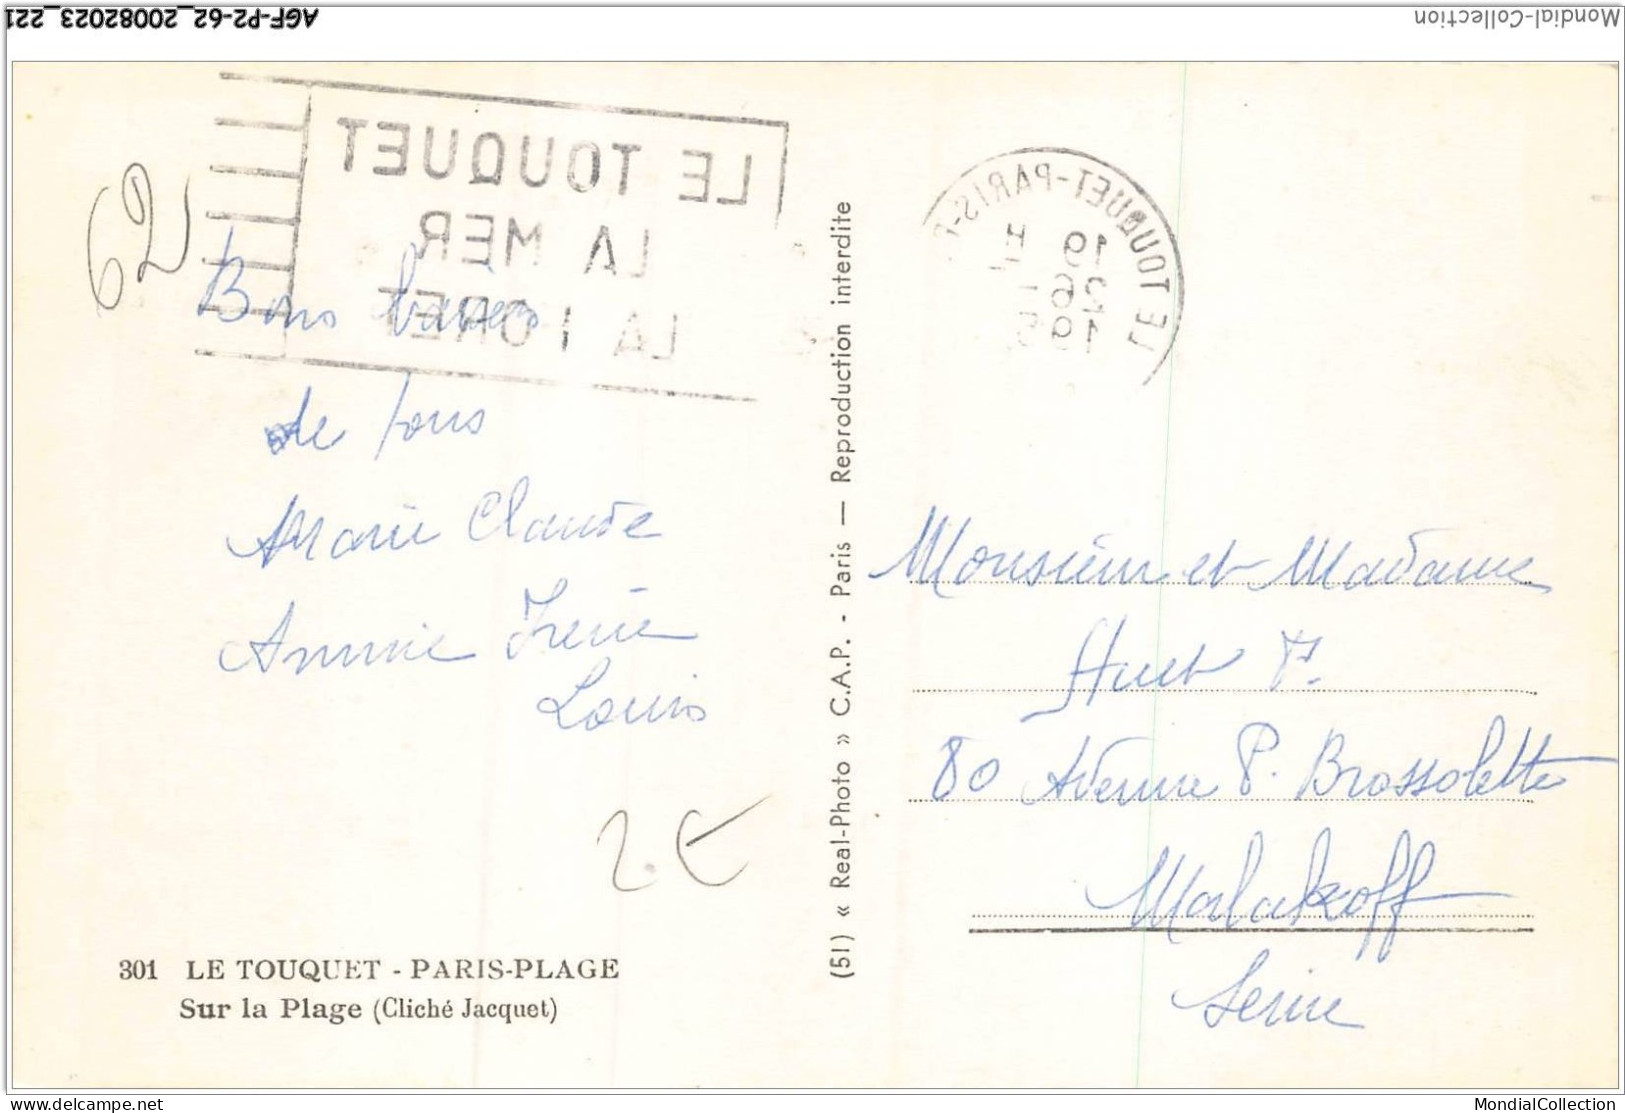 AGF-P2-62_20082023_221
Mondial-Collection
LE TOUQUET
LA MER
LA FORET
LE TOUQUET-PARIS-P
19 H
26
19
62
Bons baisers
de tous
Marie Claude
Annie Irène
Louis
2 €
301 LE TOUQUET - PARIS-PLAGE
Sur la Plage (Cliché Jacquet)
(51) « Real-Photo » C.A.P. - Paris — Reproduction interdite
Monsieur et Madame
Huet F.
80 Avenue P. Brossolette
Malakoff
Seine
delcampe.net
MondialCollection